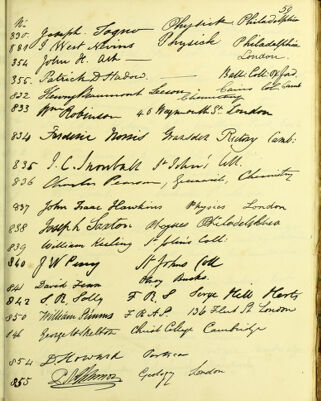 No. 59
830. Joseph Togno Physick Philadelphia
831 J West Nevins Physick Philadelphia
354 John H. Ash — London.
355 Patrick D Hadow. — Ball: Coll Oxford.
832 Henry Beaumont Leeson Caius Col. Camb
Chemistry
833 Wm Robinson 40 Weymouth St London
834 Frederic Norris Rectory Camb.
835 J. C. Snowball St John's Coll.
836 Charles Pearson, Greenwich, Chemistry
837 John Isaac Hawkins Physics London
838 Joseph Saxton Physics Philadelphia
839 William Keeling St John's Coll:
840 J W Perry St Johns Coll
841 David Bucks
842 S. R. Solly F R S Serge Hill Herts
850 William F R A S 136 Fleet St London
846 George H Skelton Christ College Cambridge
854 D Howard
855 Geology London